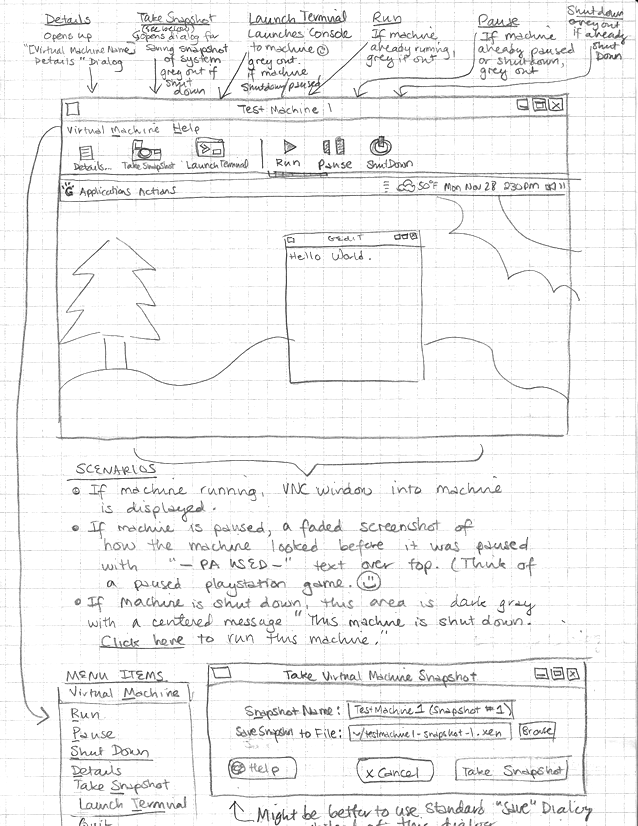 Details
Opens up
"[Virtual Machine Name]
Details" Dialog
Take Snapshot
(see below)
opens dialog for
saving snapshot
of system
grey out if
shut
down
Launch Terminal
Launches Console
to machine
grey out.
if machine
shutdown/paused
Run
If machine
already running,
grey it out
Pause
If machine
already paused
or shutdown,
grey out
Shutdown
grey out
if already
shut
Down
Test Machine 1
Virtual Machine Help
Details...
Take Snapshot
Launch Terminal
Run
Pause
ShutDown
Applications Actions
50°F Mon Nov 28 2:30 PM
GEDIT
Hello World.
SCENARIOS
If machine running, VNC window into machine
is displayed.
If machine is paused, a faded screenshot of
how the machine looked before it was paused
with "-PAUSED-" text over top. (Think of
a paused playstation game.
If machine is shut down, this area is dark grey
with a centered message "This machine is shut down.
Click here to run this machine."
MENU ITEMS
Virtual Machine
Run
Pause
Shut Down
Details
Take Snapshot
Launch Terminal
Quit
Take Virtual Machine Snapshot
Snapshot Name: TestMachine1 (Snapshot #1)
Save Snapshot to File: ~/testmachine1-snapshot-1.xen Browse
Help
X Cancel
Take Snapshot
Might be better to use standard "save" Dialog